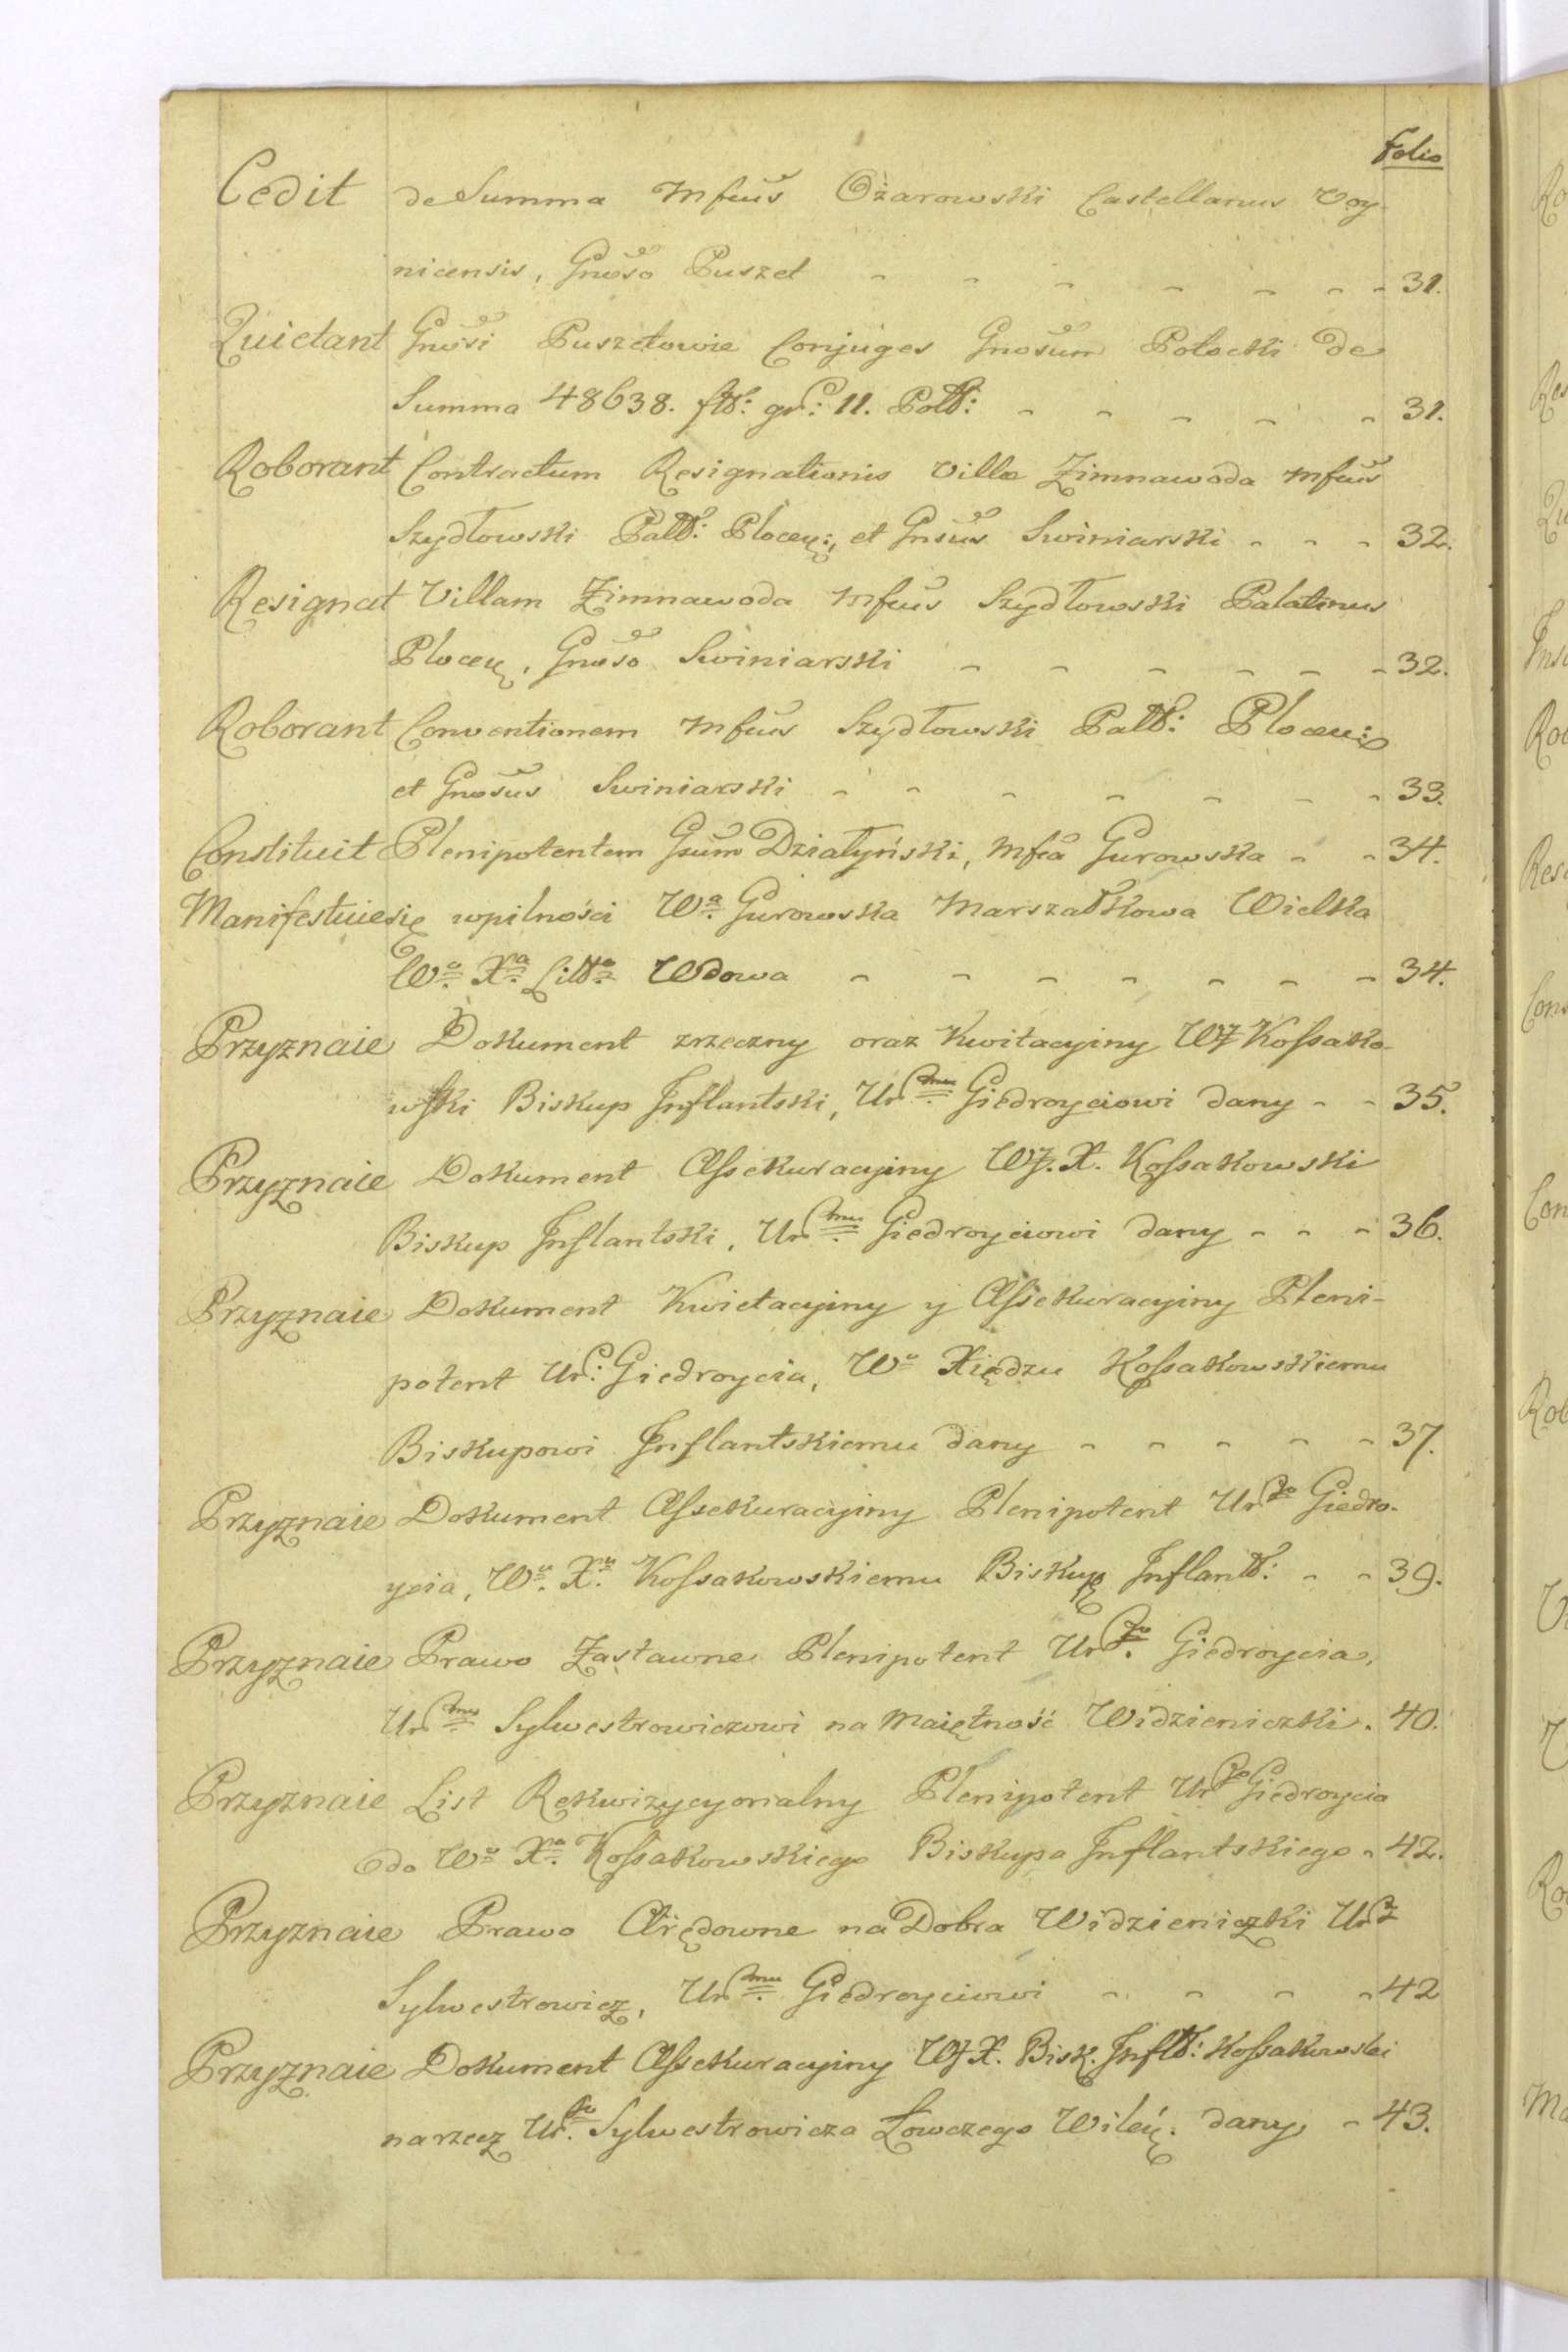 Folio
Cedit de Summa Mfcus Ożarowski Castellanus Voy-
nicensis, Gnoso Puszet - - - - - - - 31.
Quietant Gnosi Puszetowie Conjuges Gnosum Potocki de
Summa 48638. fltt: gr: 11. Poltt: - - - - - 31.
Roborant Contractum Resignationis Villæ Zimnawoda Mfcus
Szydłowski Paltt: Plocen:, et Gnsus Swiniarski - - - 32.
Resignat Villam Zimnawoda Mfcus Szydłowski Palatinus
Plocen, Gnoso Swiniarski - - - - - - 32.
Roborant Conventionem Mfcus Szydłowski Paltt: Plocen:
et Gnosus Swiniarski - - - - - - - 33.
Constituit Plenipotentem Gsum Działyński, Mfca Gurowska - - 34.
Manifestuie się wpilności Wa Gurowska Marszałkowa Wielka
Wo Xa Litta Wdowa - - - - - - - 34.
Przyznaie Dokument zrzeczny oraz Kwitacyiny WJ Kossako-
wski Biskup Inflantski, Urmu Giedroyciowi dany - - 35.
Przyznaie Dokument Assekuracyiny WJ. X. Kossakowski
Biskup Inflantski, Urmu Giedroyciowi dany - - - 36.
Przyznaie Dokument Kwietacyiny y Assekuracyiny Pleni-
potent Ur: Giedroycia, Wu Xiędzu Kossakowskiemu
Biskupowi Inflantskiemu dany - - - - - 37.
Przyznaie Dokument Assekuracyiny Plenipotent Urgo Giedro-
ycia, Wu. Xu. Kossakowskiemu Biskup Inflantt: - - 39.
Przyznaie Prawo Zastawne Plenipotent Urgo. Giedroycia,
Urmu Sylwestrowiczowi na Maiętność Widzieniczki. 40.
Przyznaie List Rekwizycyonalny Plenipotent Urgo Giedroycia
do Wo Xa. Kossakowskiego Biskupa Inflantskiego - 42.
Przyznaie Prawo Arędowne na Dobra Widzieniczki Ur
Sylwestrowicz, Urmu. Giedroyciowi - - - - 42
Przyznaie Dokument Assekuracyiny WJ X. Bisk: Infltt: Kossakowski
narzecz Urgo. Sylwestrowicza Łowczego Wileń: dany - 43.